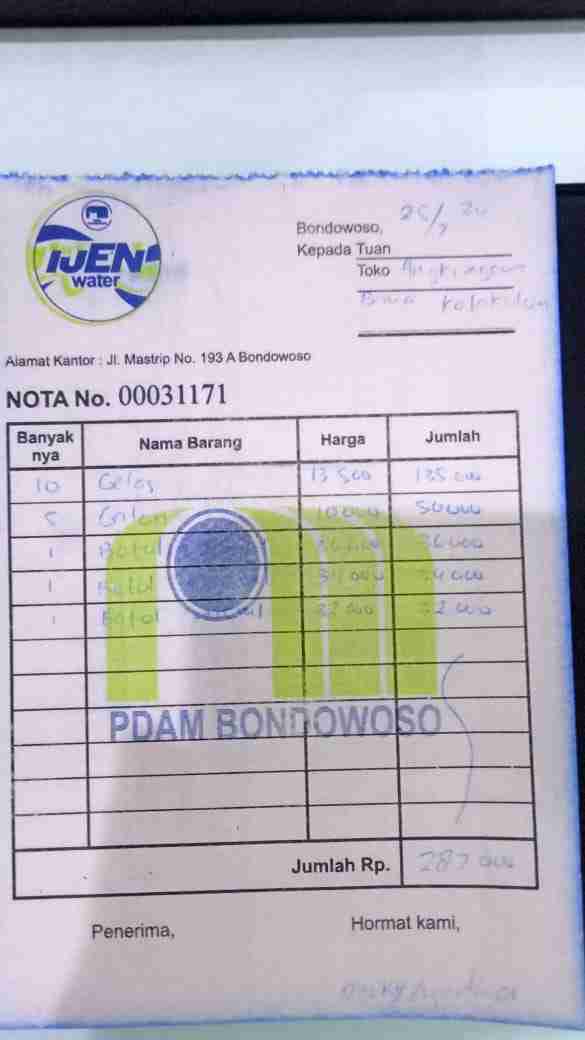 IJEN
water
Bondowoso, 25/7 20
Kepada Tuan
Toko Angkringan
Alamat Kantor : Jl. Mastrip No. 193 A Bondowoso
NOTA No. 00031171
Banyak nya Nama Barang Harga Jumlah
10 Gelas 13 500 135 000
5 Galon 10 000 50 000
1 Botol 36 000 36 000
1 Botol 34 000 34 000
1 Botol 32 000 32 000
PDAM BONDOWOSO
Jumlah Rp. 287 000
Penerima, Hormat kami,